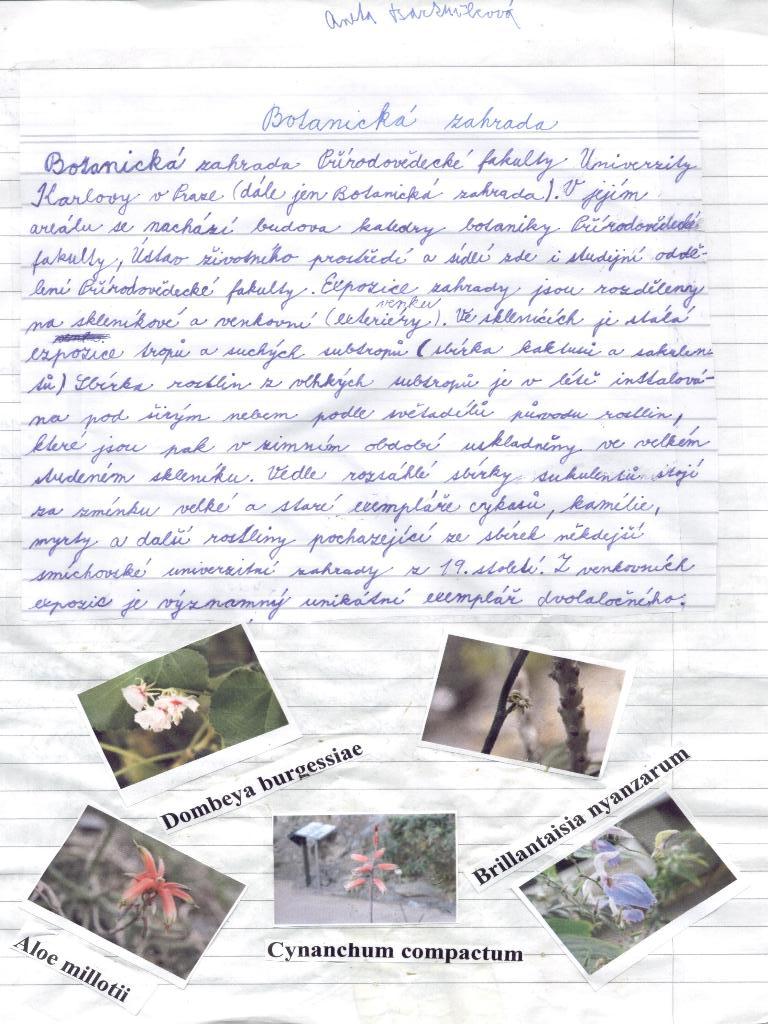 Aneta
Botanická zahrada
Botanická zahrada Přírodovědecké fakulty Univerzity
Karlovy v Praze (dále jen Botanická zahrada). V jejím
areálu se nachází budova katedry botaniky Přírodovědecké
fakulty, Ústav životního prostředí a sídlí zde i studijní oddě-
lení Přírodovědecké fakulty. Expozice zahrady jsou rozděleny
venku
na skleníkové a venkovní (exteriéry). Ve sklenících je stálá
expozice tropů a suchých subtropů (sbírka kaktusů a sukulen-
tů) Sbírka rostlin z vlhkých subtropů je v létě instalová-
na pod širým nebem podle světadílů původu rostlin,
které jsou pak v zimním období uskladněny ve velkém
studeném skleníku. Vedle rozsáhlé sbírky sukulentů stojí
za zmínku velké a staré exempláře cykasů, kamélie,
myrty a další rostliny pocházející ze sbírek někdejší
smíchovské univerzitní zahrady z 19. století. Z venkovních
expozic je významný unikátní exemplář dvolaločného.
Dombeya burgessiae
Brillantaisia nyanzarum
Aloe millotii
Cynanchum compactum